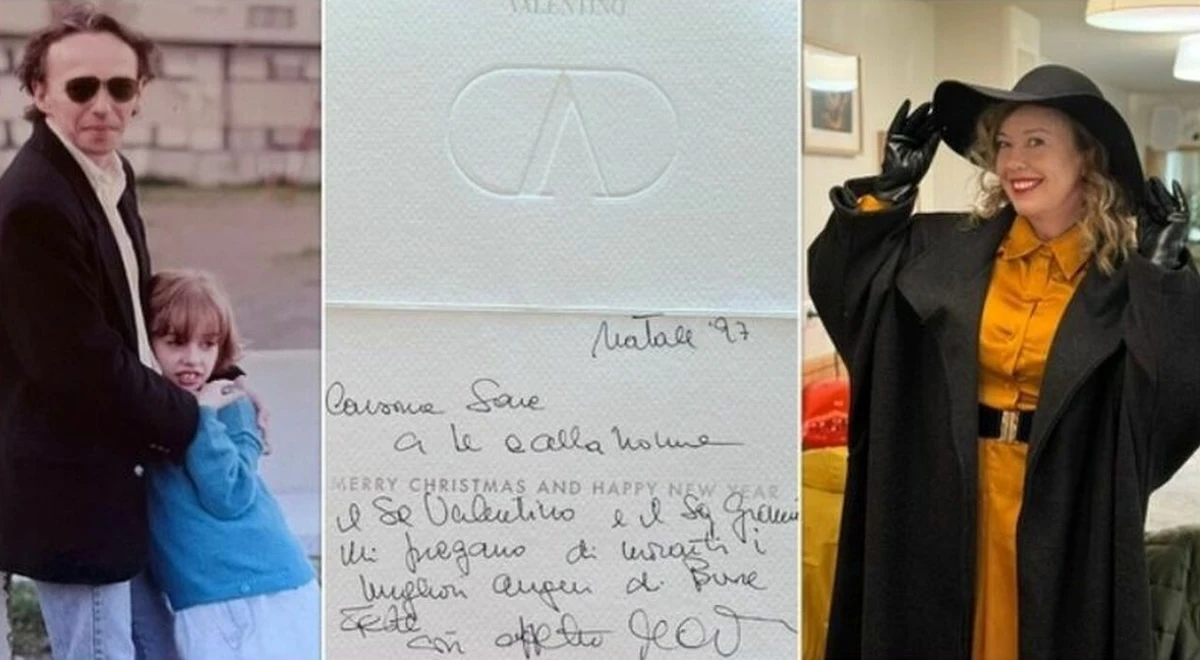 VALENTINO
Natale '97
Carissima Sara
a te e alla nonna
MERRY CHRISTMAS AND HAPPY NEW YEAR
il Sg Valentino e il Sg
mi pregano di inviarti i
migliori auguri di Buone
Feste
con affetto